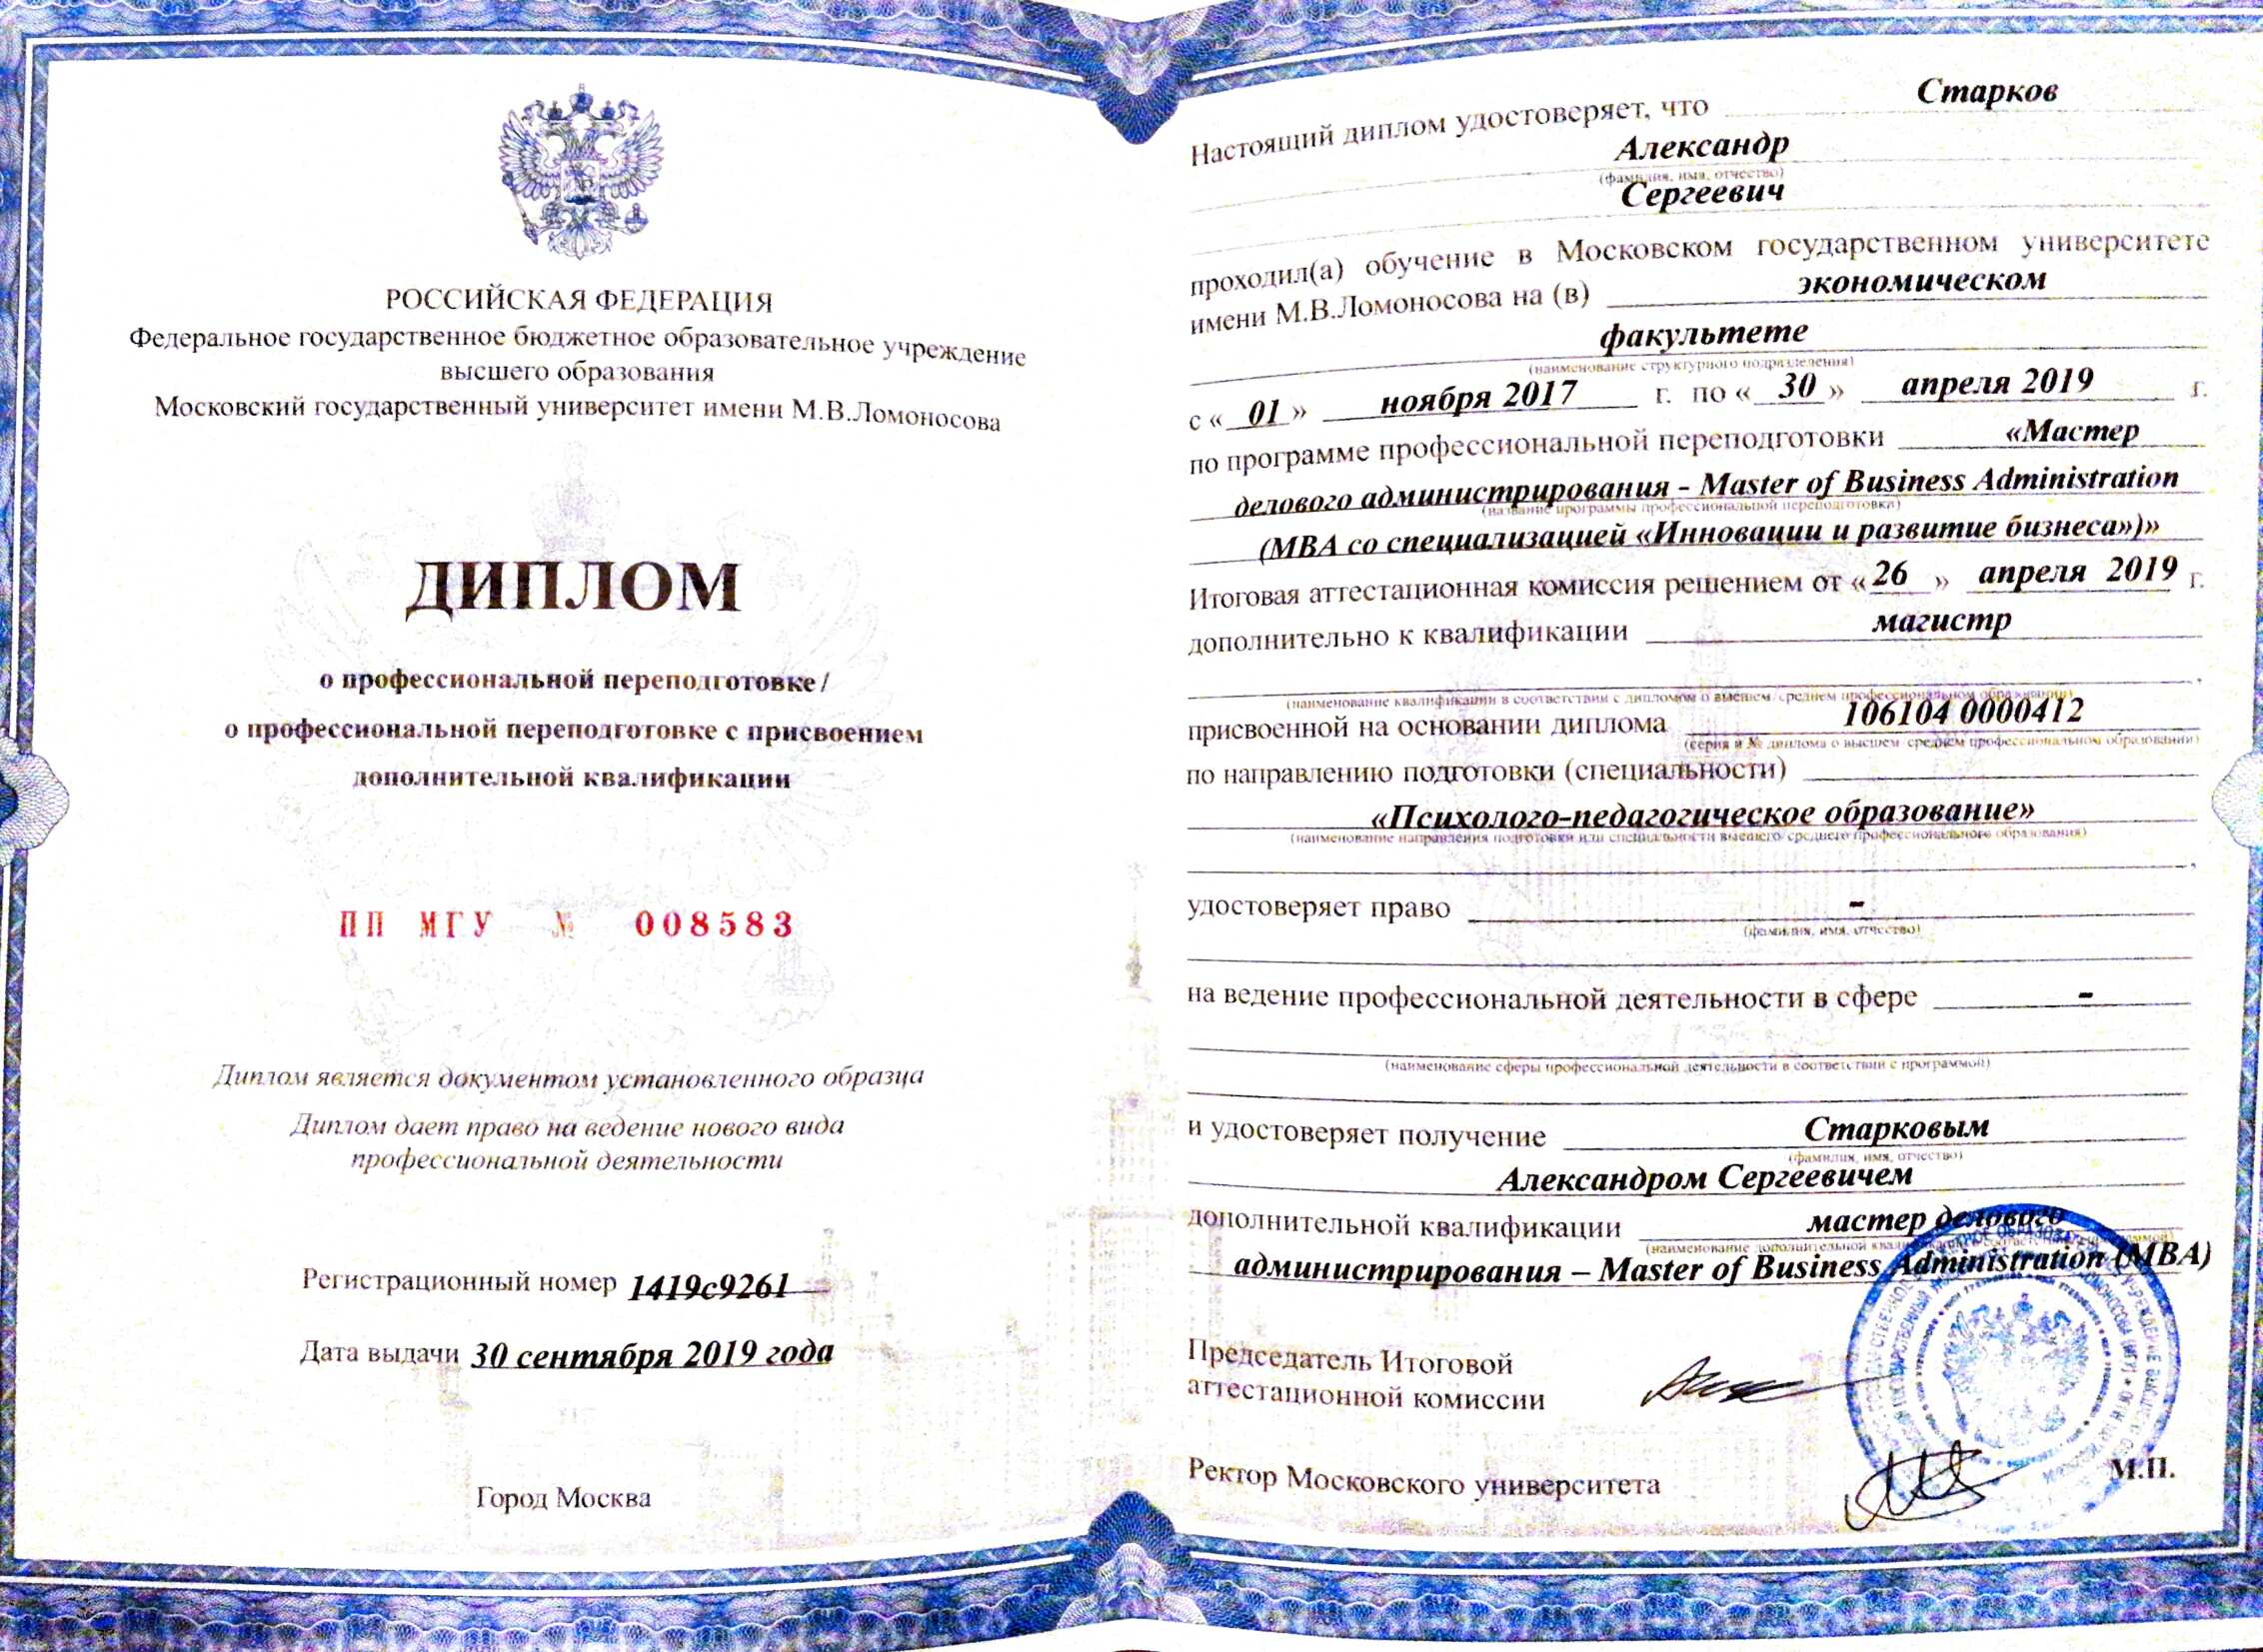 РОССИЙСКАЯ ФЕДЕРАЦИЯ
Федеральное государственное бюджетное образовательное учреждение
высшего образования
Московский государственный университет имени М.В.Ломоносова
ДИПЛОМ
о профессиональной переподготовке/
о профессиональной переподготовке с присвоением
дополнительной квалификации
ПП МГУ № 008583
Диплом является документом установленного образца
Диплом дает право на ведение нового вида
профессиональной деятельности
Регистрационный номер 1419с9261
Дата выдачи 30 сентября 2019 года
Город Москва
Настоящий диплом удостоверяет, что Старков
Александр
(фамилия, имя, отчество)
Сергеевич
проходил(а) обучение в Московском государственном университете
имени М.В.Ломоносова на (в) экономическом
факультете
(наименование структурного подразделения)
с «01» ноября 2017 г. по «30» апреля 2019 г.
по программе профессиональной переподготовки «Мастер
делового администрирования - Master of Business Administration
(название программы профессиональной переподготовки)
(MBA со специализацией «Инновации и развитие бизнеса»)»
Итоговая аттестационная комиссия решением от «26» апреля 2019 г.
дополнительно к квалификации магистр
(наименование квалификации в соответствии с дипломом о высшем/среднем профессиональном образовании)
присвоенной на основании диплома 106104 0000412
(серия и № диплома о высшем/среднем профессиональном образовании)
по направлению подготовки (специальности)
«Психолого-педагогическое образование»
(наименование направления подготовки или специальности высшего/среднего профессионального образования)
удостоверяет право -
(фамилия, имя, отчество)
на ведение профессиональной деятельности в сфере -
(наименование сферы профессиональной деятельности в соответствии с программой)
и удостоверяет получение Старковым
(фамилия, имя, отчество)
Александром Сергеевичем
дополнительной квалификации мастер делового
(наименование дополнительной
администрирования – Master of Business Administration (MBA)
Председатель Итоговой
аттестационной комиссии
Ректор Московского университета
М.П.